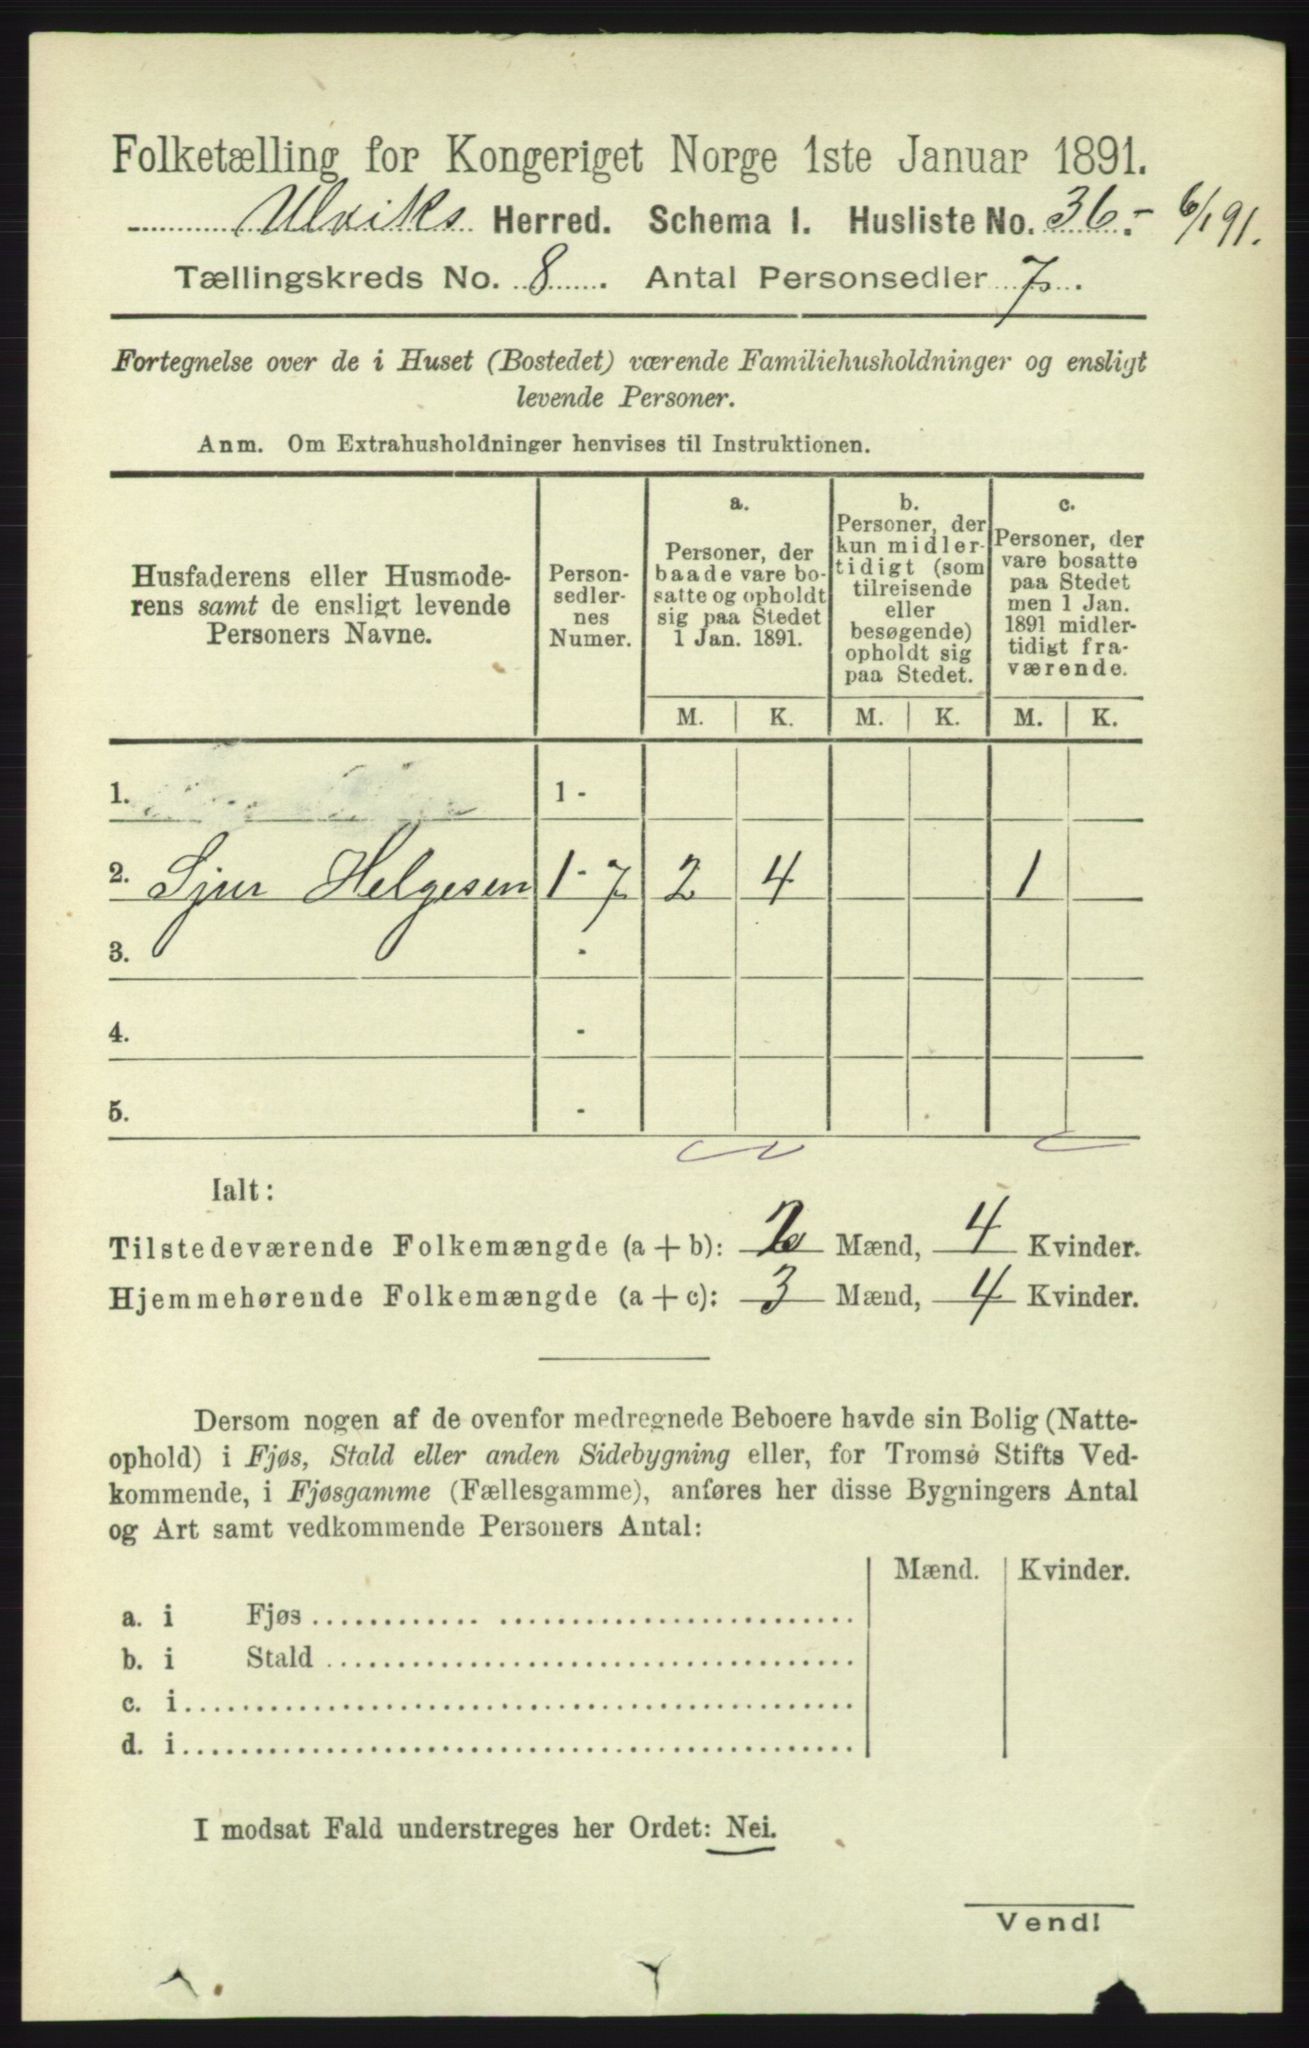 Folketælling for Kongeriget Norge 1ste Januar 1891.
Ulviks Herred. Schema I. Husliste No. 36.- 6/1 91.
Tællingskreds No. 8. Antal Personsedler 7.
Fortegnelse over de i Huset (Bostedet) værende Familiehusholdninger og ensligt
levende Personer.
Anm. Om Extrahusholdninger henvises til Instruktionen.
Husfaderens eller Husmode-
rens samt de ensligt levende
Personers Navne.
Person-
sedler-
nes
Numer.
a.
Personer, der
baade vare bo-
satte og opholdt
sig paa Stedet
1 Jan. 1891.
b.
Personer, der
kun midler-
tidigt (som
tilreisende
eller
besøgende)
opholdt sig
paa Stedet.
c.
Personer, der
vare bosatte
paa Stedet
men 1 Jan.
1891 midler-
tidigt fra-
værende.
M. K. M. K. M. K.
1. 1 -
2. Sjur Helgesen 1 - 7 2 4 1
3. -
4. -
5. -
Ialt:
Tilstedeværende Folkemængde (a + b): 2 Mænd, 4 Kvinder.
Hjemmehørende Folkemængde (a + c): 3 Mænd, 4 Kvinder.
Dersom nogen af de ovenfor medregnede Beboere havde sin Bolig (Natte-
ophold) i Fjøs, Stald eller anden Sidebygning eller, for Tromsø Stifts Ved-
kommende, i Fjøsgamme (Fællesgamme), anføres her disse Bygningers Antal
og Art samt vedkommende Personers Antal:
Mænd. Kvinder.
a. i Fjøs
b. i Stald
c. i
d. i
I modsat Fald understreges her Ordet: Nei.
Vend!